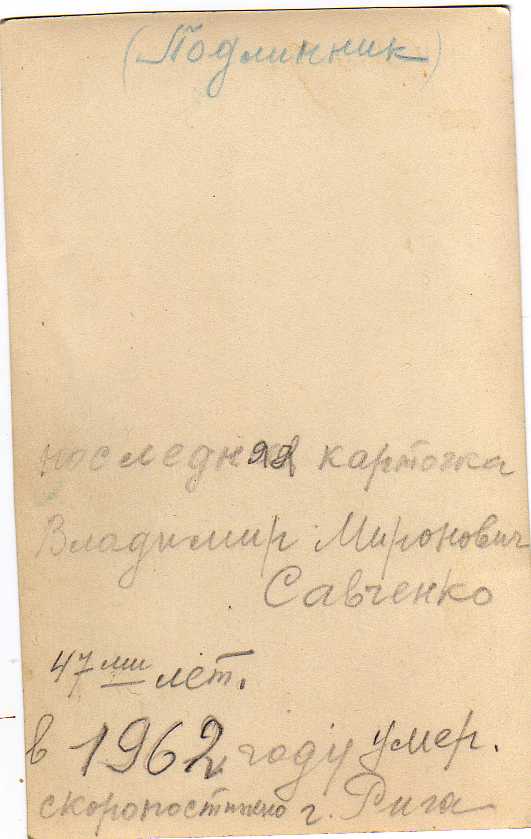 (Подлинник)
последняя карточка
Владимир Миронович
Савченко
47ми лет.
в 1962 году умер.
скоропостижно г. Рига